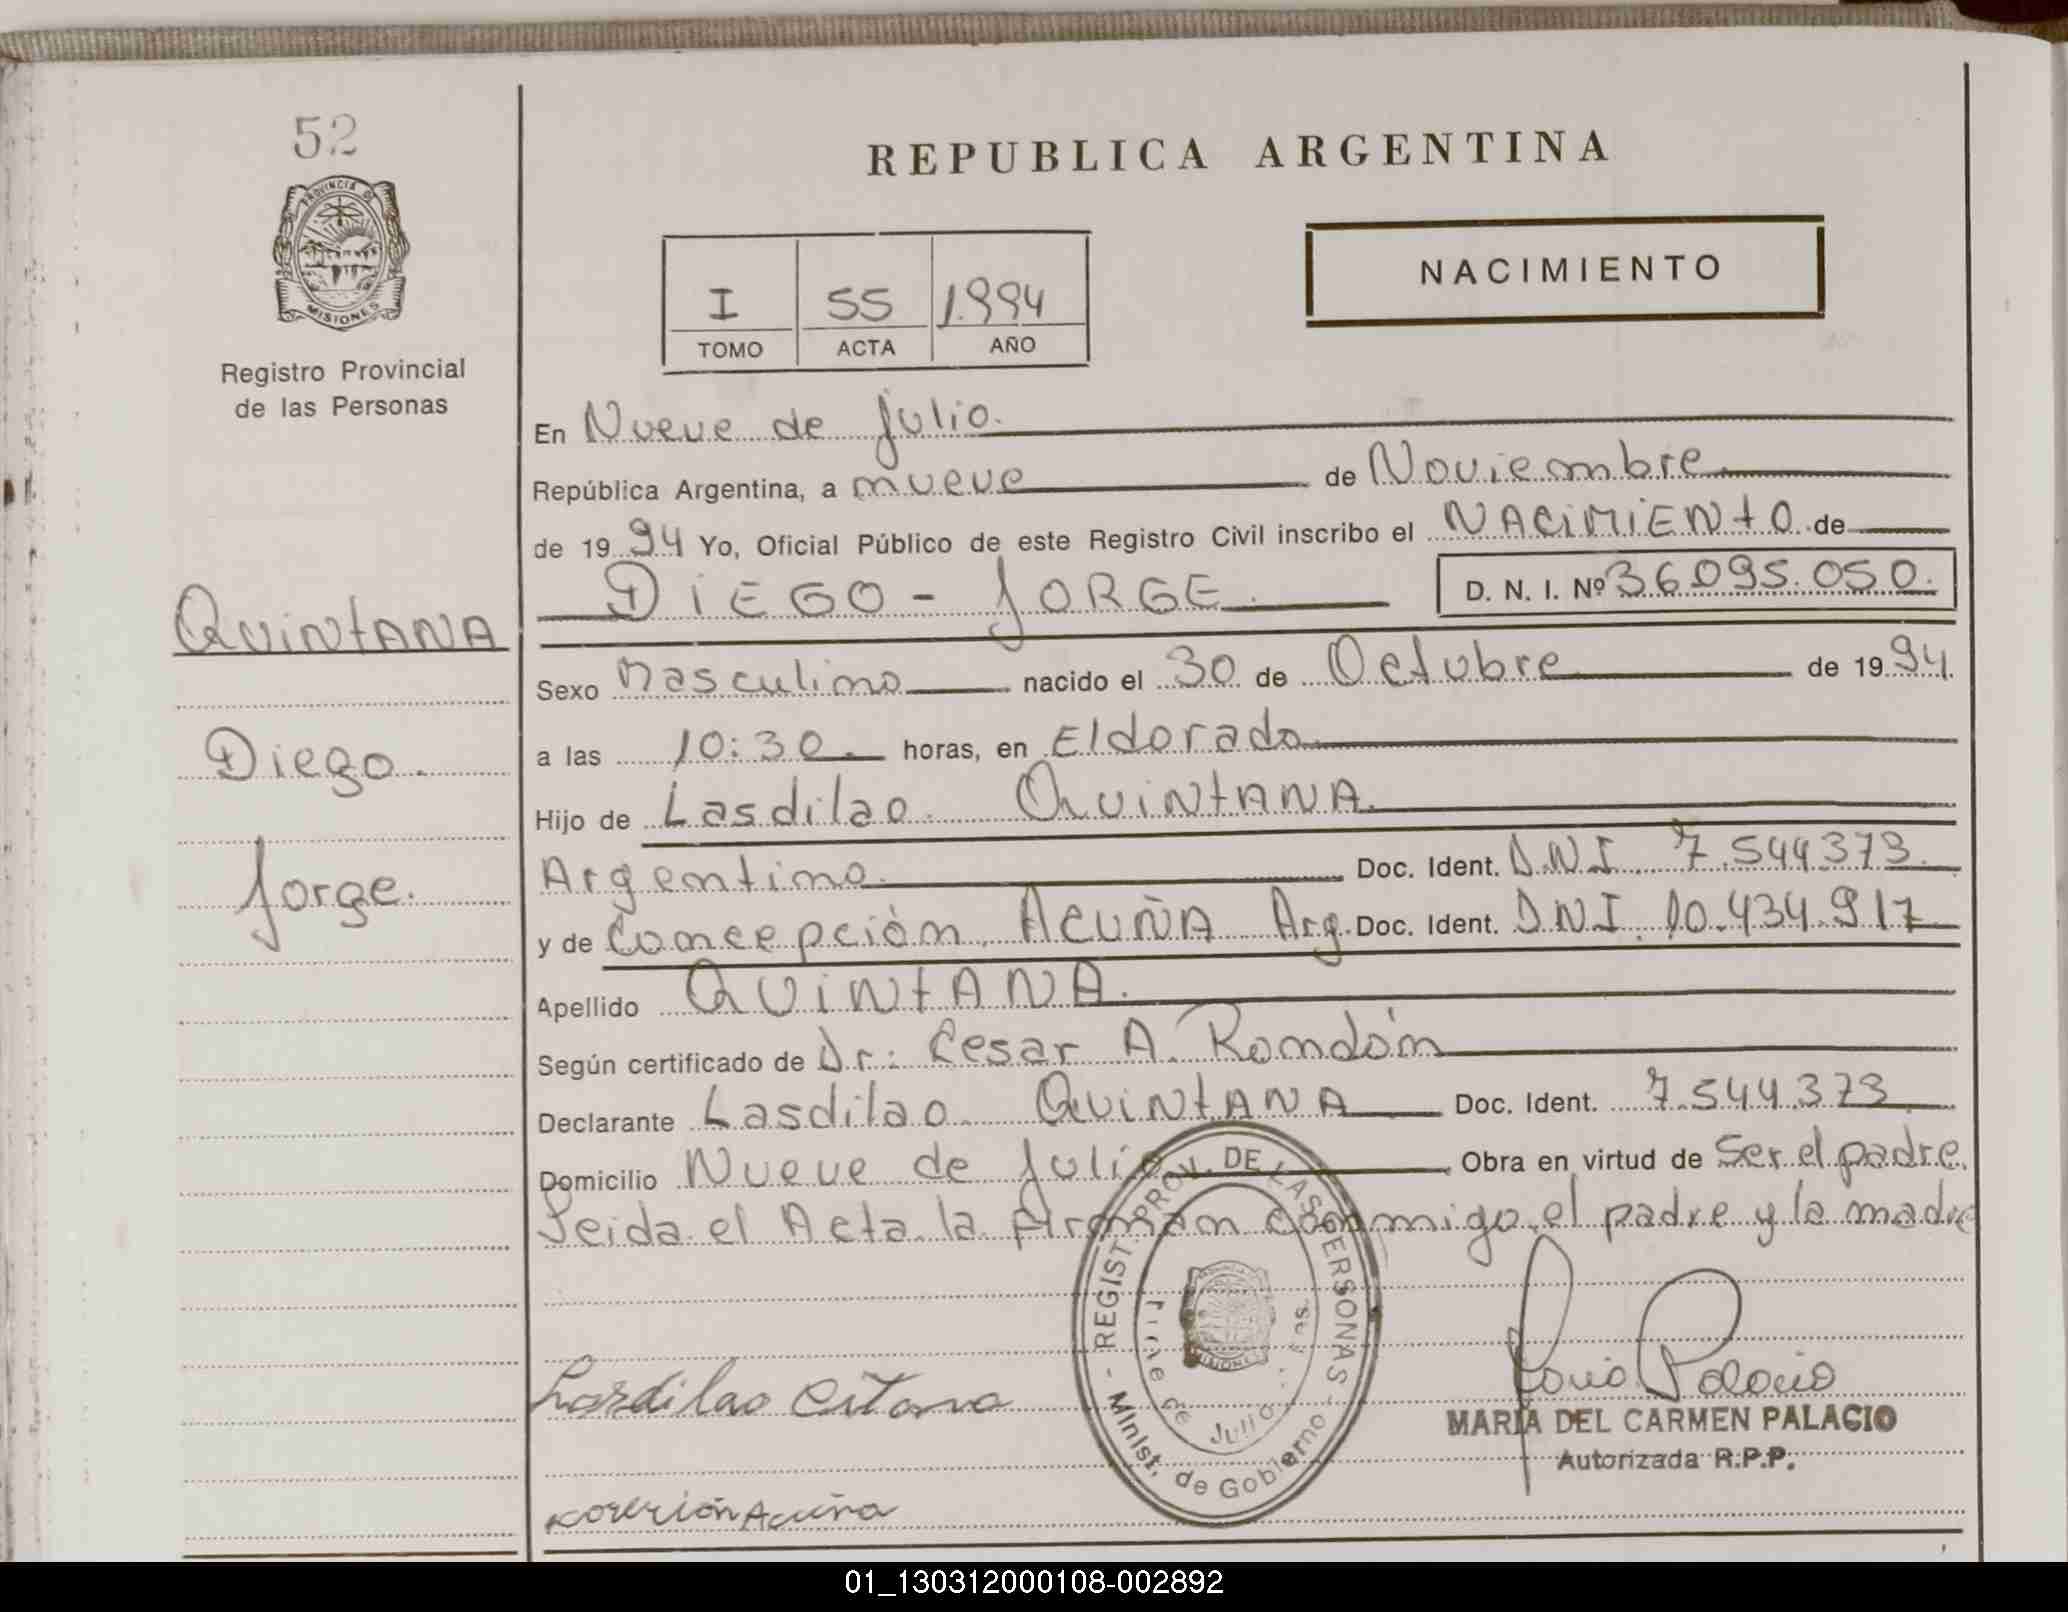 52
PROVINCIA DE
MISIONES
Registro Provincial
de las Personas
QUINTANA
Diego.
Jorge.
REPUBLICA ARGENTINA
NACIMIENTO
I 55 1.994
TOMO ACTA AÑO
En Nueve de Julio.
República Argentina, a nueve de Noviembre
de 19 94 Yo, Oficial Público de este Registro Civil inscribo el NACIMIENTO de
DIEGO - JORGE. D. N. I. Nº 36.095.050.
Sexo Masculino nacido el 30 de Octubre de 19 94.
a las 10:30. horas, en Eldorado
Hijo de Lasdilao QUINTANA.
Argentino. Doc. Ident. D.N.I. 7.544373.
y de Concepción ACUÑA Arg. Doc. Ident. D.N.I. 10.434.917
Apellido QUINTANA.
Según certificado de Dr: Cesar A. Rondón
Declarante Lasdilao QUINTANA Doc. Ident. 7.544.373.
Domicilio Nueve de Julio Obra en virtud de Ser el padre.
Leida el Acta la firman conmigo, el padre y la madre
REGIST. PROV. DE LAS PERSONAS
Minist. de Gobierno
Nueve de Julio
MISIONES
Lasdilao
MARIA DEL CARMEN PALACIO
Autorizada R.P.P.
Acuña
01_130312000108-002892